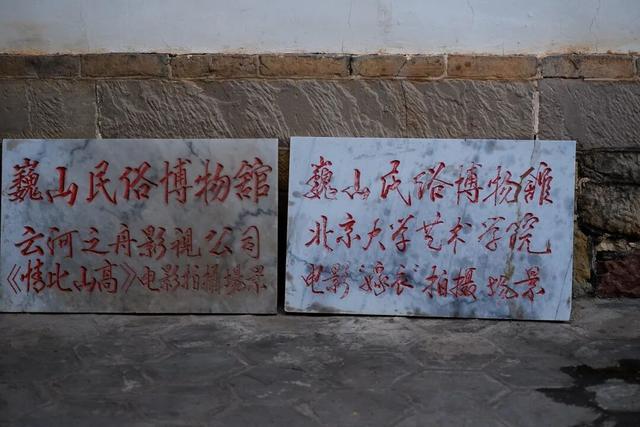 巍山民俗博物舘
云河之舟影視公司
《情比山高》电影拍攝場景
巍山民俗博物舘
北京大学艺术学院
电影“嫁衣”拍摄场景